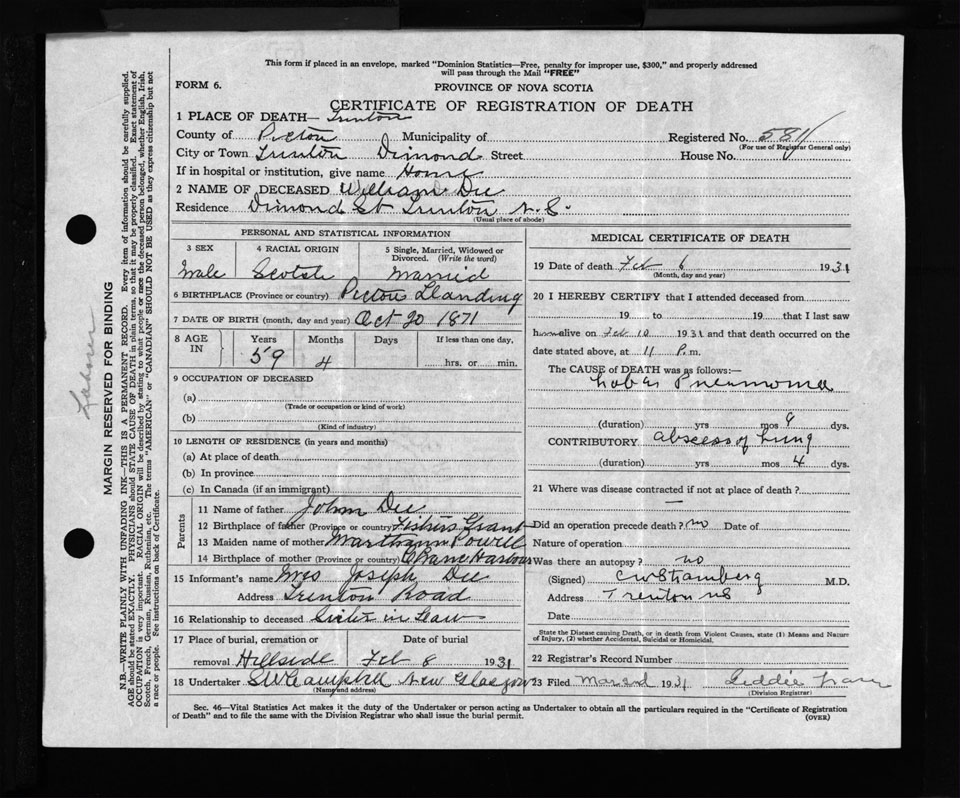 This form if placed in an envelope, marked "Dominion Statistics—Free, penalty for improper use, $300," and properly addressed
will pass through the Mail "FREE"
FORM 6.
PROVINCE OF NOVA SCOTIA
CERTIFICATE OF REGISTRATION OF DEATH
1 PLACE OF DEATH— Trenton
County of Pictou Municipality of Registered No. 581
(For use of Registrar General only)
City or Town Trenton Dimond Street House No.
If in hospital or institution, give name Home
2 NAME OF DECEASED William Dee
Residence Dimond St Trenton N.S.
(Usual place of abode)
PERSONAL AND STATISTICAL INFORMATION
3 SEX 4 RACIAL ORIGIN 5 Single, Married, Widowed or
Divorced. (Write the word)
Male Scotch Married
6 BIRTHPLACE (Province or country) Pictou Landing
7 DATE OF BIRTH (month, day and year) Oct 20 1871
8 AGE IN Years Months Days If less than one day,
59 4 hrs. or min.
9 OCCUPATION OF DECEASED
(a)
(Trade or occupation or kind of work)
(b)
(Kind of industry)
10 LENGTH OF RESIDENCE (in years and months)
(a) At place of death
(b) In province
(c) In Canada (if an immigrant)
Parents
11 Name of father John Dee
12 Birthplace of father (Province or country) Fishers Grant
13 Maiden name of mother Powell
14 Birthplace of mother (Province or country) Harbour
15 Informant's name Mrs Joseph Dee
Address Trenton Road
16 Relationship to deceased Sister in Law
17 Place of burial, cremation or Date of burial
removal Hillside Feb 8 1931
18 Undertaker Campbell New Glasgow
(Name and address)
MEDICAL CERTIFICATE OF DEATH
19 Date of death Feb 6 1931
(Month, day and year)
20 I HEREBY CERTIFY that I attended deceased from
19 to 19 that I last saw
him alive on Feb 10 1931 and that death occurred on the
date stated above, at 11 P.m.
The CAUSE of DEATH was as follows:—
Lobar Pneumonia
(duration) yrs mos 8 dys.
CONTRIBUTORY abscess of Lung
(duration) yrs mos 4 dys.
21 Where was disease contracted if not at place of death?
—
Did an operation precede death? no Date of
Nature of operation
Was there an autopsy? no
(Signed) C W Stramberg M.D.
Address Trenton NS
Date
State the Disease causing Death, or in death from Violent Causes, state (1) Means and Nature
of Injury, (2) whether Accidental, Suicidal or Homicidal.
22 Registrar's Record Number
23 Filed 1931
(Division Registrar)
Sec. 46—Vital Statistics Act makes it the duty of the Undertaker or person acting as Undertaker to obtain all the particulars required in the "Certificate of Registration
of Death" and to file the same with the Division Registrar who shall issue the burial permit.
(OVER)
Laborer
MARGIN RESERVED FOR BINDING
N.B.—WRITE PLAINLY WITH UNFADING INK—THIS IS A PERMANENT RECORD. Every item of information should be carefully supplied.
AGE should be stated EXACTLY. PHYSICIANS should STATE CAUSE OF DEATH in plain terms, so that it may be properly classified. Exact statement of
OCCUPATION is very important. RACIAL ORIGIN will be described by stating to what people or race the deceased person belonged, whether English, Irish,
Scotch, French, German, Russian, Ruthenian, etc. The terms "AMERICAN" or "CANADIAN" SHOULD NOT BE USED as they express citizenship but not
a race or people. See instructions on back of Certificate.